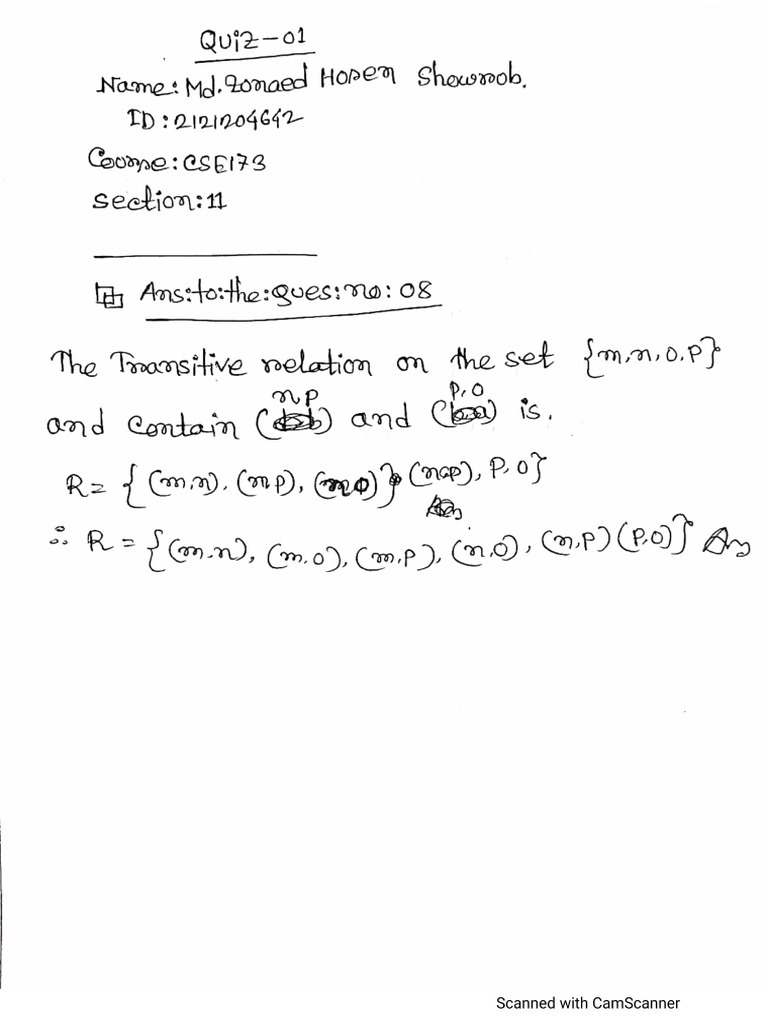 QUiZ-01
Name: Md. Zonaed Hosen Showrob.
ID: 2121204642
Course: CSE173
Section: 11
Ans:to:the:ques:no: 08
The Transitive relation on the set {m,n,o,p}
n p p,o
and contain ( ) and ( ) is.
R = { (m,n), (m p), (m o)} (n p), p, o}
∴ R = {(m,n), (m,o), (m,p), (n,o), (n,p) (p,o)} Ans
Scanned with CamScanner